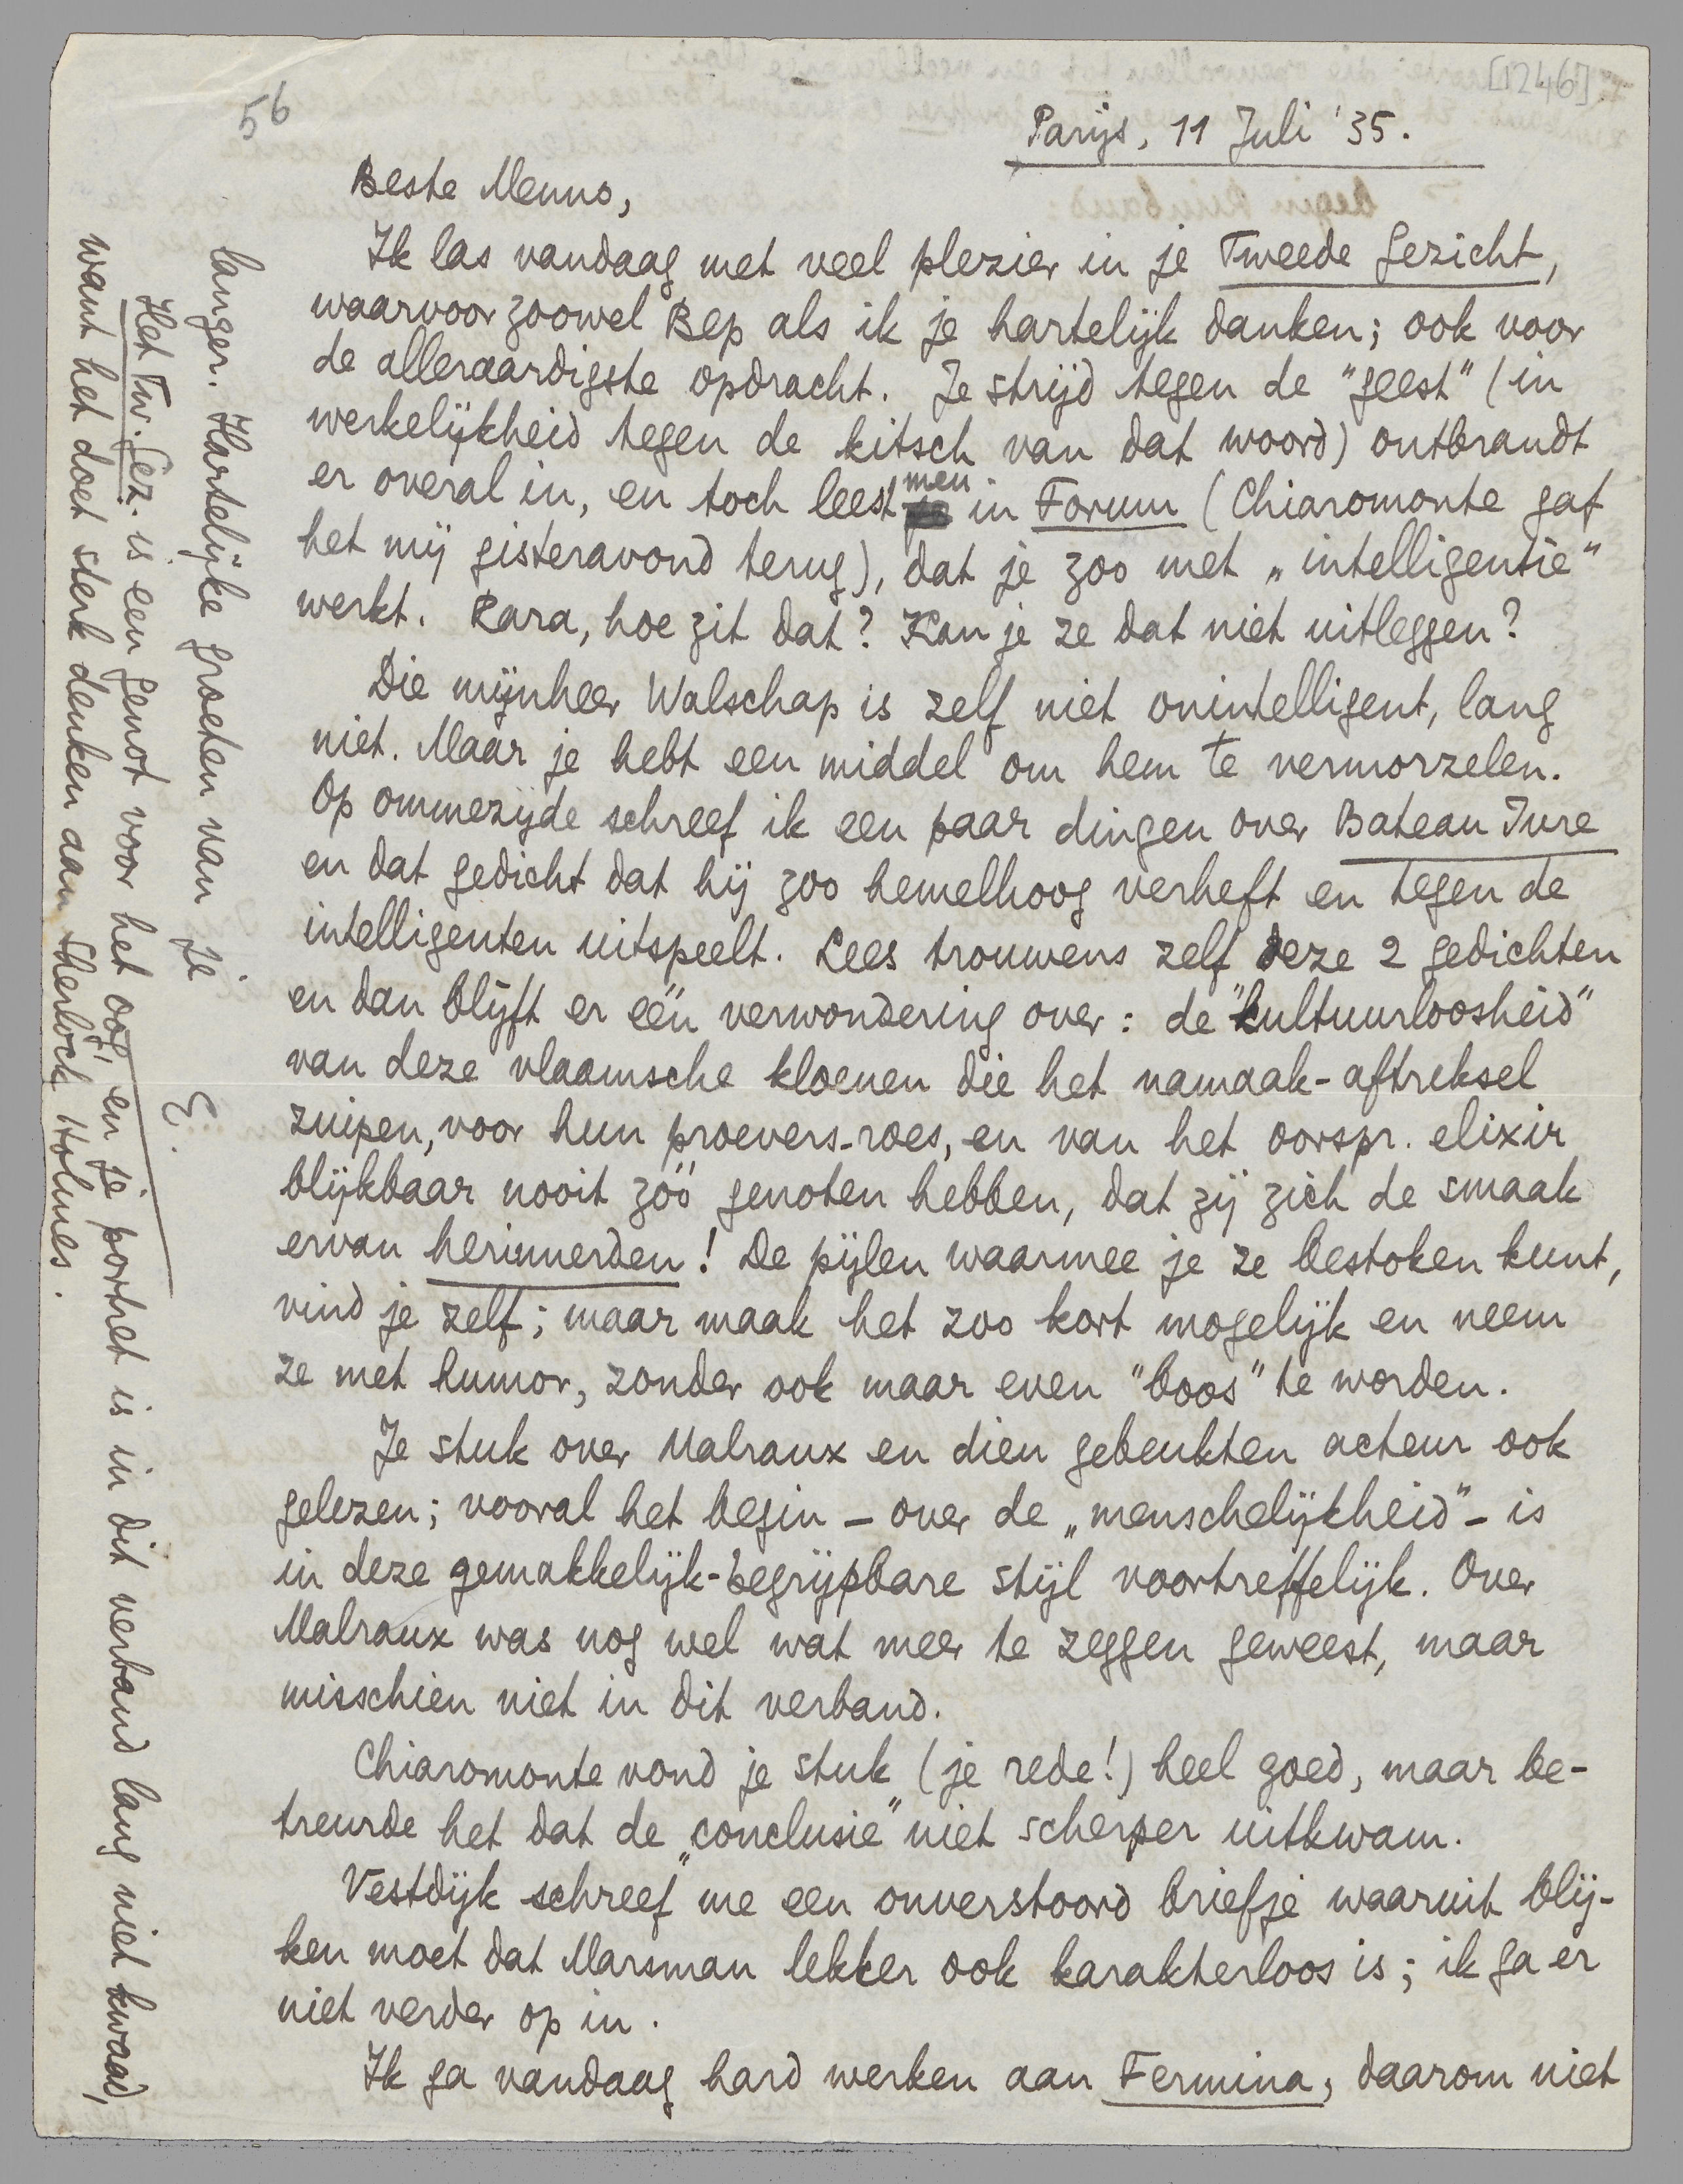 56
[1246]
Parijs, 11 Juli '35.
Beste Menno,
Ik las vandaag met veel plezier in je Tweede Gezicht,
waarvoor zoowel Bep als ik je hartelijk danken; ook voor
de alleraardigste opdracht. Je strijd tegen de "geest" (in
werkelijkheid tegen de kitsch van dat woord) ontbrandt
er overal in, en toch leest men in Forum (Chiaromonte gaf
het mij gisteravond terug), dat je zoo met „intelligentie"
werkt. Rara, hoe zit dat? Kan je ze dat niet uitleggen?
Die mijnheer Walschap is zelf niet onintelligent, lang
niet. Maar je hebt een middel om hem te vermorzelen.
Op ommezijde schreef ik een paar dingen over Bateau Ivre
en dat gedicht dat hij zoo hemelhoog verheft en tegen de
intelligenten uitspeelt. Lees trouwens zelf deze 2 gedichten
en dan blijft er één verwondering over: de "kultuurloosheid"
van deze vlaamsche kloenen die het namaak-aftreksel
zuipen, voor hun proevers-roes, en van het oorspr. elixir
blijkbaar nooit zóó genoten hebben, dat zij zich de smaak
ervan herinnerden! De pijlen waarmee je ze bestoken kunt,
vind je zelf; maar maak het zoo kort mogelijk en neem
ze met humor, zonder ook maar even "boos" te worden.
Je stuk over Malraux en dien gebeukten acteur ook
gelezen; vooral het begin – over de „menschelijkheid" – is
in deze gemakkelijk-begrijpbare stijl voortreffelijk. Over
Malraux was nog wel wat meer te zeggen geweest, maar
misschien niet in dit verband.
Chiaromonte vond je stuk (je rede!) heel goed, maar be-
treurde het dat de „conclusie" niet scherper uitkwam.
Vestdijk schreef me een onverstoord briefje waaruit blij-
ken moet dat Marsman lekker ook karakterloos is; ik ga er
niet verder op in.
Ik ga vandaag hard werken aan Fermina, daarom niet
langer. Hartelijke groeten van je
E.
Het Tw. Gez. is een genot voor het oog, en je portret is in dit verband lang niet kwaad,
want het doet sterk denken aan Sherlock Holmes.